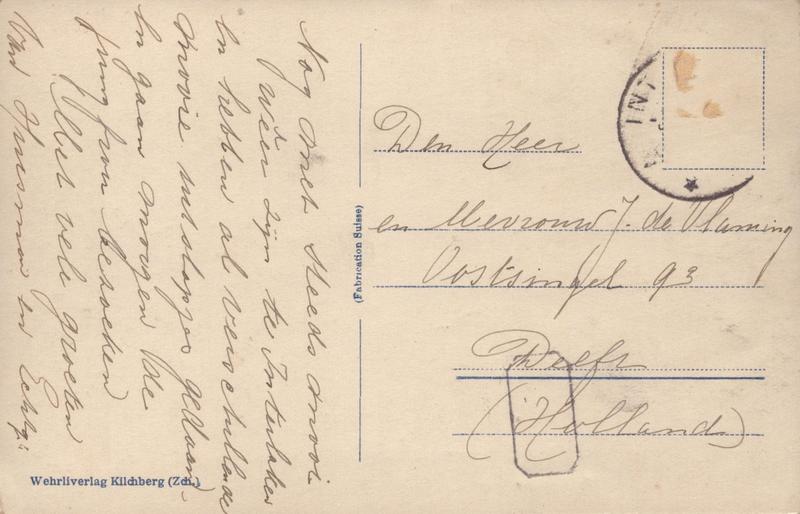 Nog met steeds mooi
weer zijn te Interlaken
en hebben al verschillende
mooie uitstapjes gedaan.
en gaan morgen de
Jungfrau bezoeken
Met vele groeten
van Huisman en Echtg:
Den Heer
en Mevrouw J. de Vlaming
Oostsingel 93
Delft
(Holland)
(Fabrication Suisse)
Wehrliverlag Kilchberg (Zch.)
INT